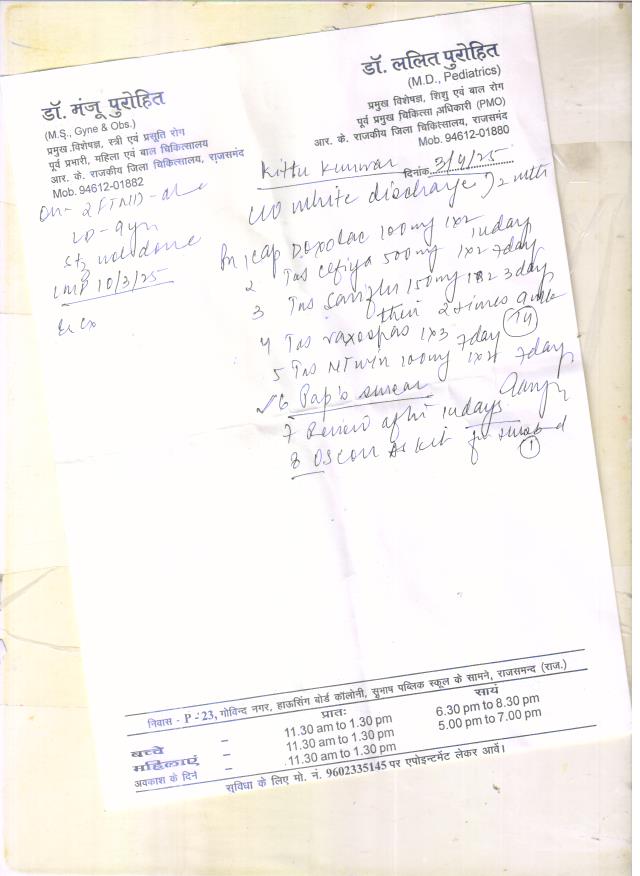 डॉ. मंजू पुरोहित
(M.S., Gyne & Obs.)
प्रमुख विशेषज्ञ, स्त्री एवं प्रसूति रोग
पूर्व प्रभारी, महिला एवं बाल चिकित्सालय
आर. के. राजकीय जिला चिकित्सालय, राजसमंद
Mob. 94612-01882
डॉ. ललित पुरोहित
(M.D., Pediatrics)
प्रमुख विशेषज्ञ, शिशु एवं बाल रोग
पूर्व प्रमुख चिकित्सा अधिकारी (PMO)
आर. के. राजकीय जिला चिकित्सालय, राजसमंद
Mob. 94612-01880
Kittu Kunwar
दिनांक 3/4/25
white discharge
2 FTND
LD - 9yr
LMP 10/3/25
1 cap Doxolac 100mg 1x2 10days
2 Tab 500mg 1x2 7day
3 Tab 150mg 3day
then 2 times a
4 Tab 1x3 7day
14
5 Tab 100mg 7day
6 Pap's smear
7 Review after 10days
8 kit for
1
निवास - P - 23, गोविन्द नगर, हाऊसिंग बोर्ड कॉलोनी, सुभाष पब्लिक स्कूल के सामने, राजसमन्द (राज.)
प्रातः सायं
बच्चे – 11.30 am to 1.30 pm 6.30 pm to 8.30 pm
महिलाएं – 11.30 am to 1.30 pm 5.00 pm to 7.00 pm
अवकाश के दिन – 11.30 am to 1.30 pm
सुविधा के लिए मो. नं. 9602335145 पर एपोइन्टमेंट लेकर आवें।